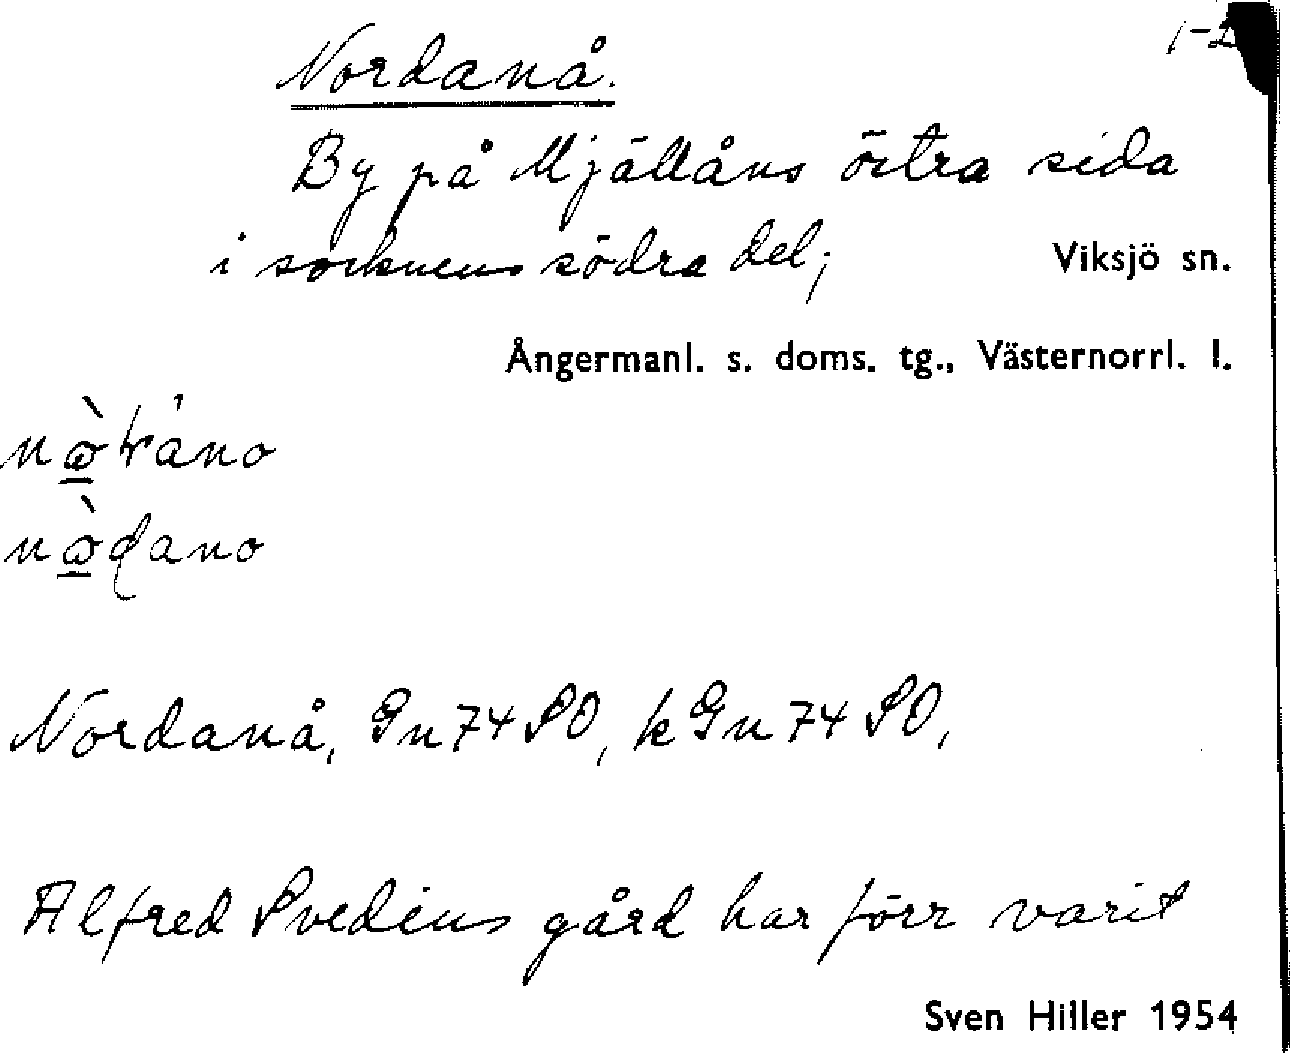 1-2
Nordanå.
By på Mjällåns östra sida
i socknens södra del; Viksjö sn.
Ångermanl. s. doms. tg., Västernorrl. l.
Nordanå, Gn74SO, kGn74SO,
Alfred Svedins gård har förr varit
Sven Hiller 1954